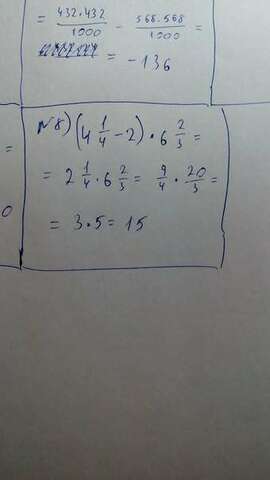 = 432.432/1000 - 568.568/1000 =
= -136
№8) (4 1/4 - 2) · 6 2/3 =
= 2 1/4 · 6 2/3 = 9/4 · 20/3 =
= 3 · 5 = 15
=
0